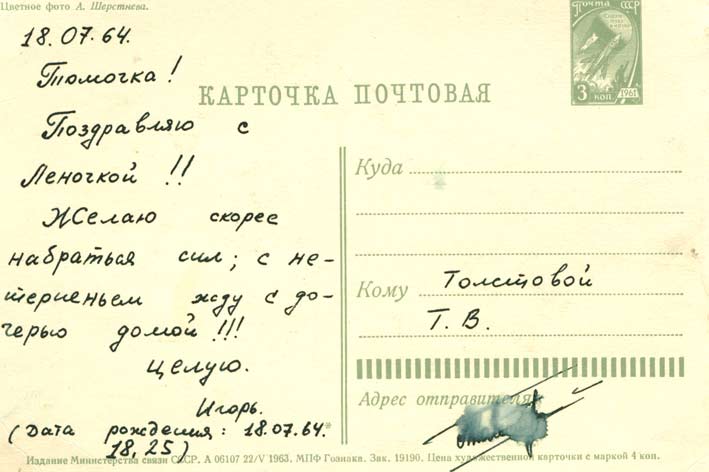 Цветное фото А. Шерстнева.
18.07.64.
Томочка!
Поздравляю с
Леночкой !!
Желаю скорее
набраться сил; с не-
терпеньем жду с до-
черью домой !!!
Целую.
Игорь.
(Дата рождения: 18.07.64.
18,25)
Почта СССР
3 коп 1961
КАРТОЧКА ПОЧТОВАЯ
Куда
Кому Толстовой
Т. В.
Адрес отправителя
Издание Министерства связи СССР. А 06107 22/V 1963. МПФ Гознака. Зак. 19190. Цена художественной карточки с маркой 4 коп.